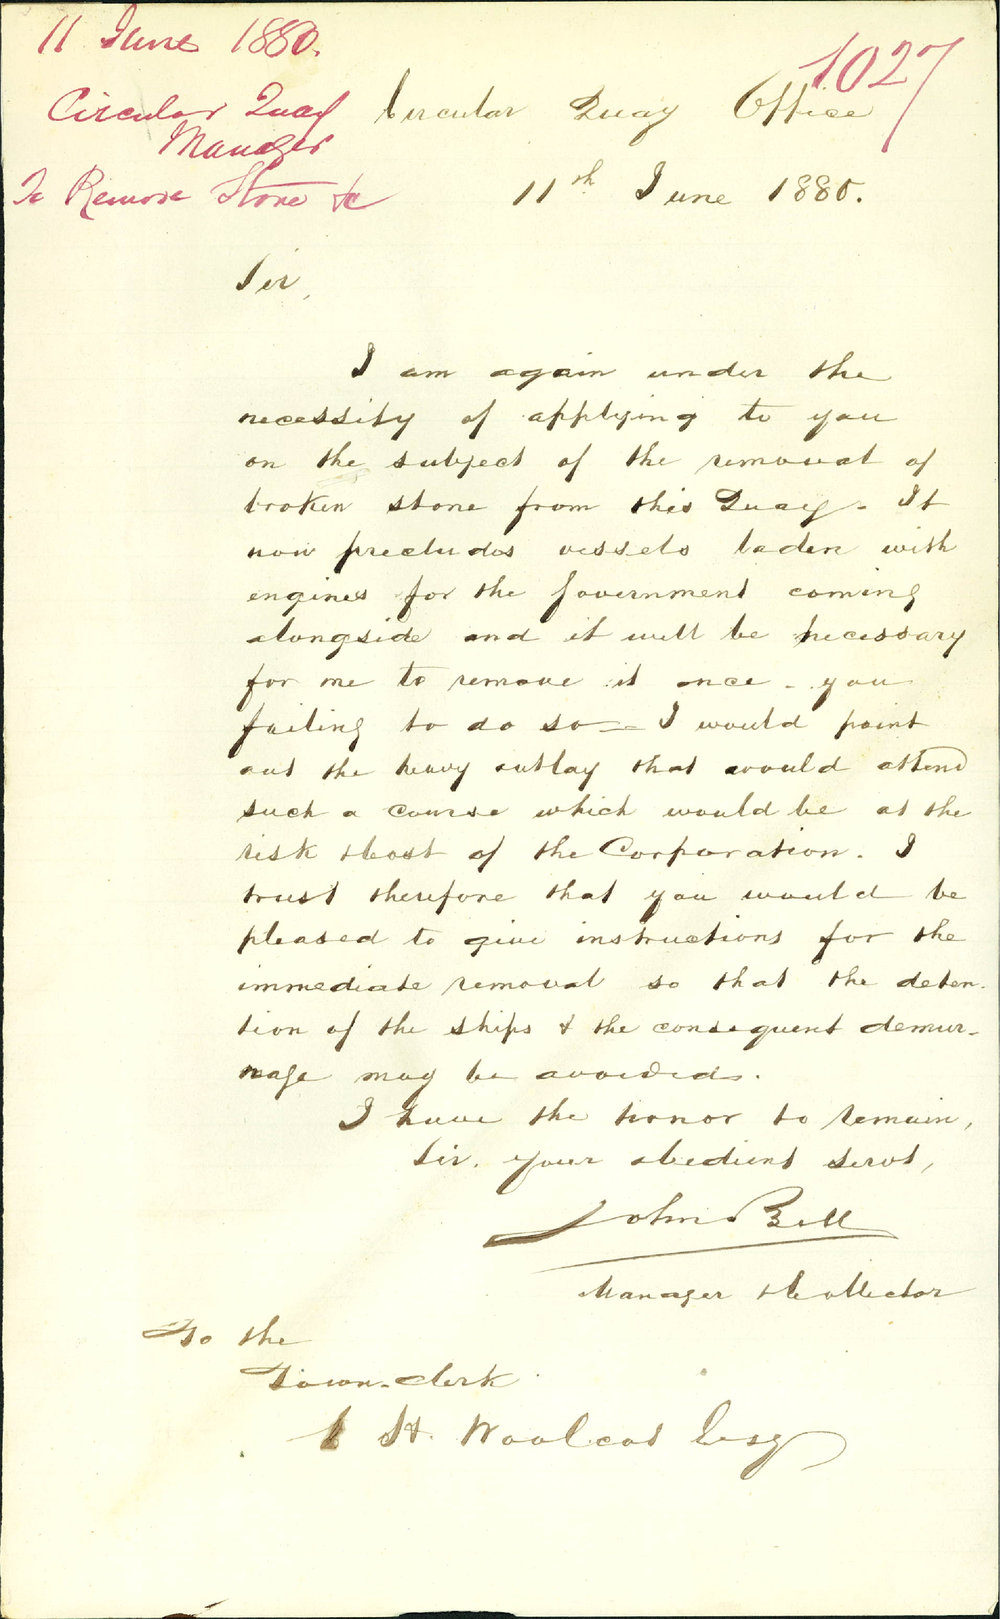 11 June 1880.
1027
Circular Quay
Manager
To Remove Stone &c
Circular Quay Office
11th June 1880.
Sir,
I am again under the
necessity of applying to you
on the subject of the removal of
broken stone from this Quay - It
now precludes vessels laden with
engines for the Government coming
alongside and it will be necessary
for me to remove it once - you
failing to do so - I would point
out the heavy outlay that would attend
such a course which would be at the
risk & cost of the Corporation. I
trust therefore that you would be
pleased to give instructions for the
immediate removal so that the deten-
tion of the ships & the consequent demur-
rage may be avoided.
I have the honor to remain,
Sir, your obedient servt,
John Bell
Manager & Collector
To the
Town-Clerk
H. Woolcott Esq